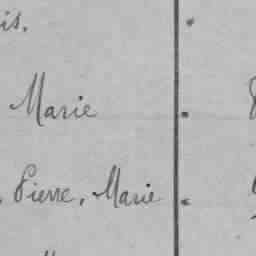 is.
Marie
, Pierre, Marie